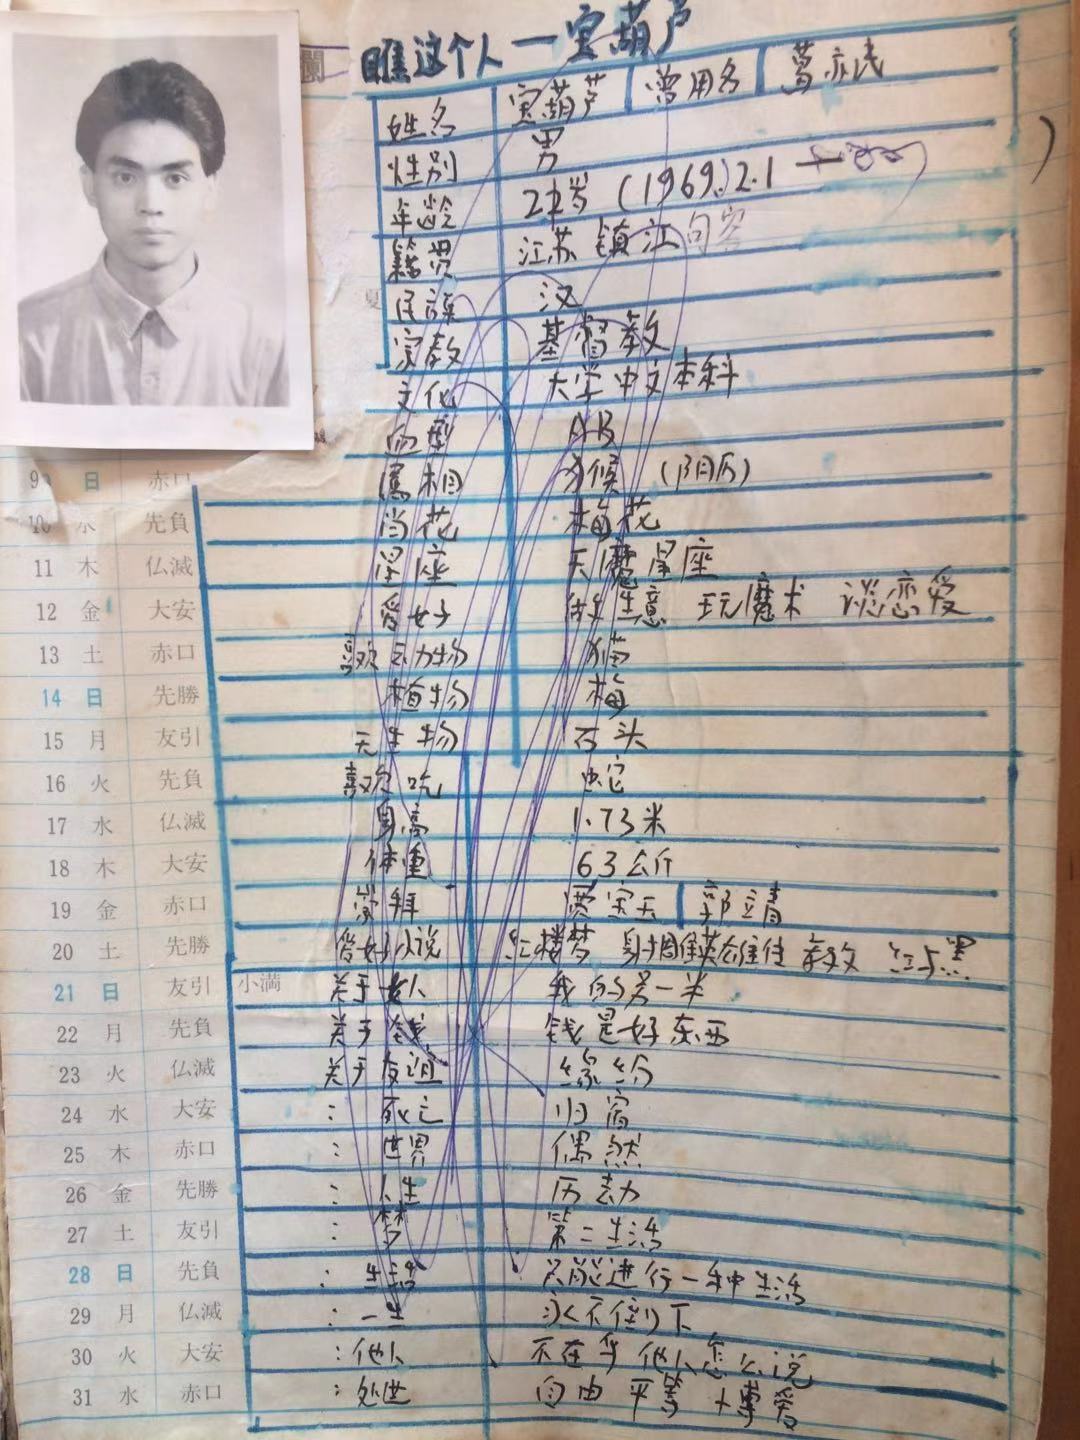 欄
瞧这个人一宝葫芦
姓名 宝葫芦 曾用名 葛亦民
性别 男
年龄 24岁 (1969.)2.1
籍贯 江苏镇江句容
民族 汉
夏
宗教 基督教
文化 大学中文本科
血型 AB
9 日 赤口 属相 猴 (阴历)
10 水 先負 当花 梅花
11 木 仏滅 星座 天魔星座
12 金 大安 爱好 做生意 玩魔术 谈恋爱
13 土 赤口 喜欢动物 猫
14 日 先勝 植物 梅
15 月 友引 无生物 石头
16 火 先負 喜欢吃 蛇
17 水 仏滅 身高 1.73米
18 木 大安 体重 63公斤
19 金 赤口 崇拜 贾宝玉 郭靖
20 土 先勝 爱好小说 红楼梦 射雕英雄传 亲 红与黑
21 日 友引 小満 关于女人 我的另一半
22 月 先負 关于钱 钱是好东西
23 火 仏滅 关于友谊 缘份
24 水 大安 : 死亡 归宿
25 木 赤口 : 世界 偶然
26 金 先勝 : 人生 历劫
27 土 友引 : 梦 第二生活
28 日 先負 : 生活 只能进行一种生活
29 月 仏滅 : 一生 永不倒下
30 火 大安 : 他人 不在乎他人怎么说
31 水 赤口 : 处世 自由 平等 十博爱